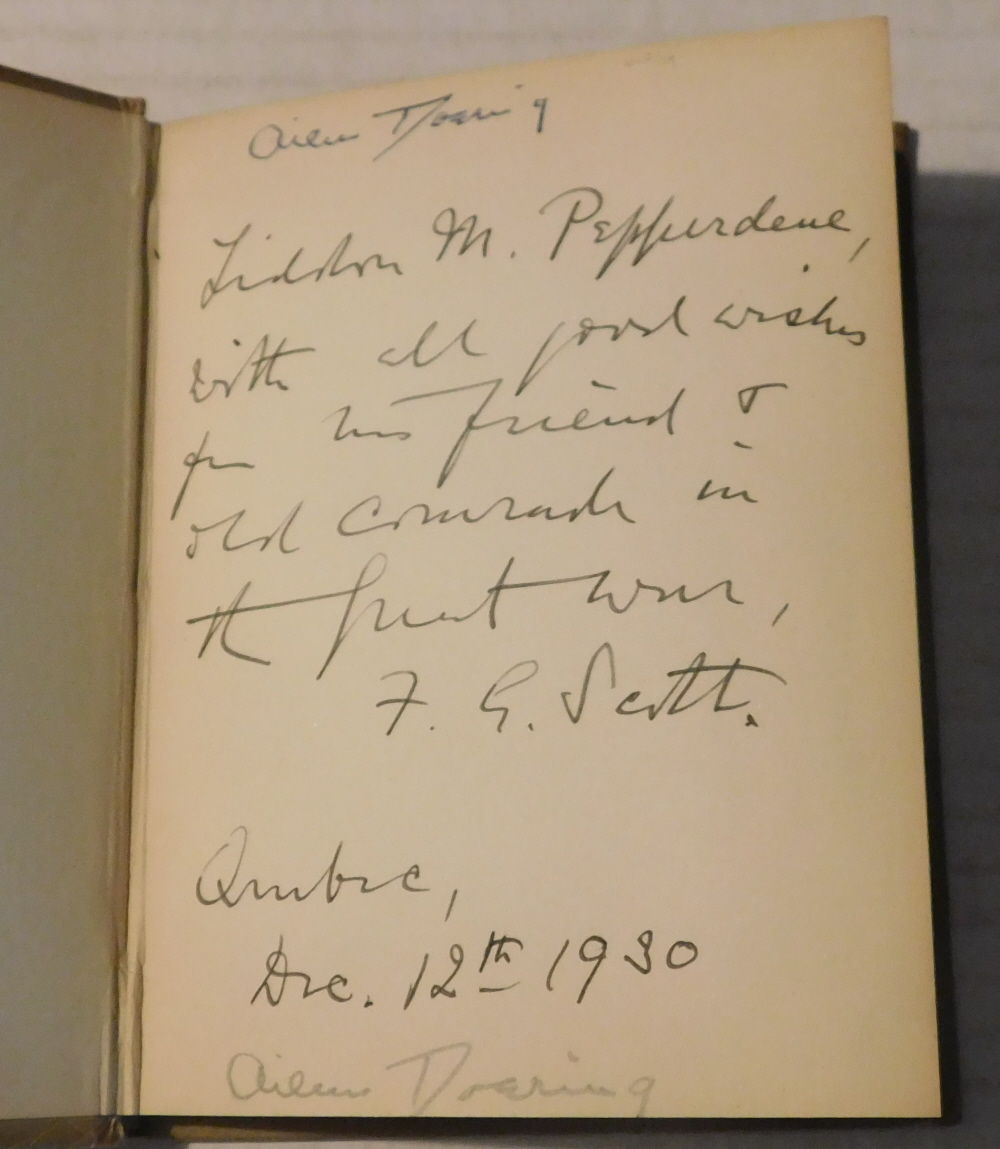 Aileen Doering
Liddon M. Pepperdene,
with all good wishes
from his friend &
old comrade in
the great war,
F. G. Scott.
Quebec,
Dec. 12th 1930
Aileen Doering